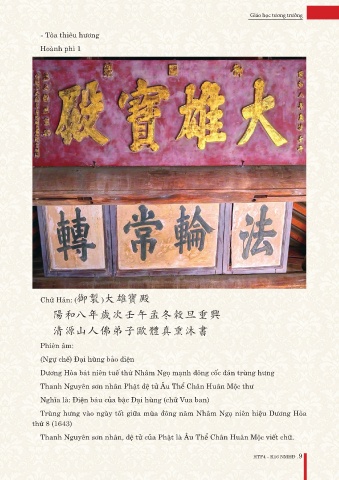 Giáo học tương trưởng
- Tòa thiêu hương
Hoành phi 1
大雄寶殿
法輪常轉
Chữ Hán: (御製)大雄寶殿
陽和八年歲次壬午孟冬穀旦重興
清源山人佛弟子歐體真熏沐書
Phiên âm:
(Ngự chế) Đại hùng bảo điện
Dương Hòa bát niên tuế thứ Nhâm Ngọ mạnh đông cốc đán trùng hưng
Thanh Nguyên sơn nhân Phật đệ tử Âu Thể Chân Huân Mộc thư
Nghĩa là: Điện báu của bậc Đại hùng (chữ Vua ban)
Trùng hưng vào ngày tốt giữa mùa đông năm Nhâm Ngọ niên hiệu Dương Hòa
thứ 8 (1643)
Thanh Nguyên sơn nhân, đệ tử của Phật là Âu Thể Chân Huân Mộc viết chữ.